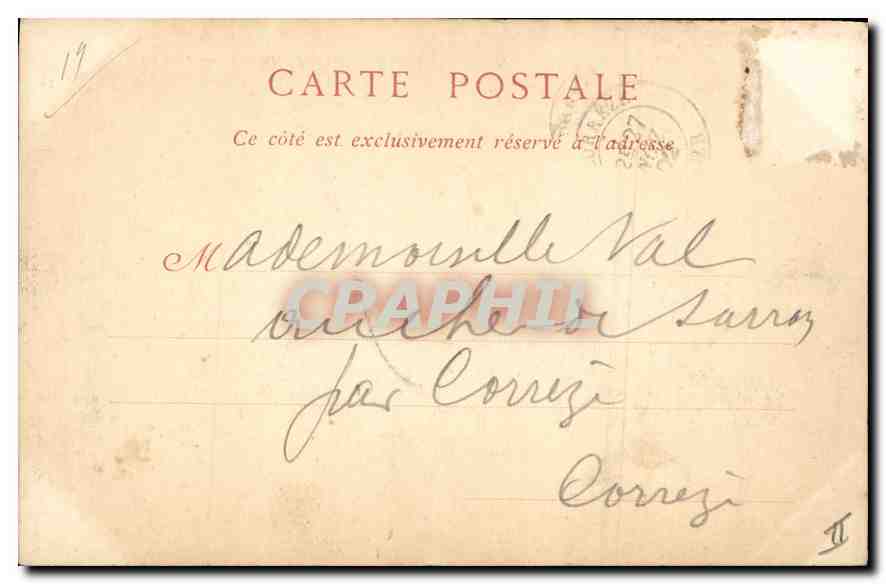 19
CARTE POSTALE
Ce côté est exclusivement réservé à l'adresse
27
02
Mademoiselle Val
CPAPHIL
de Sarran
par Corrèze
Corrèze
II